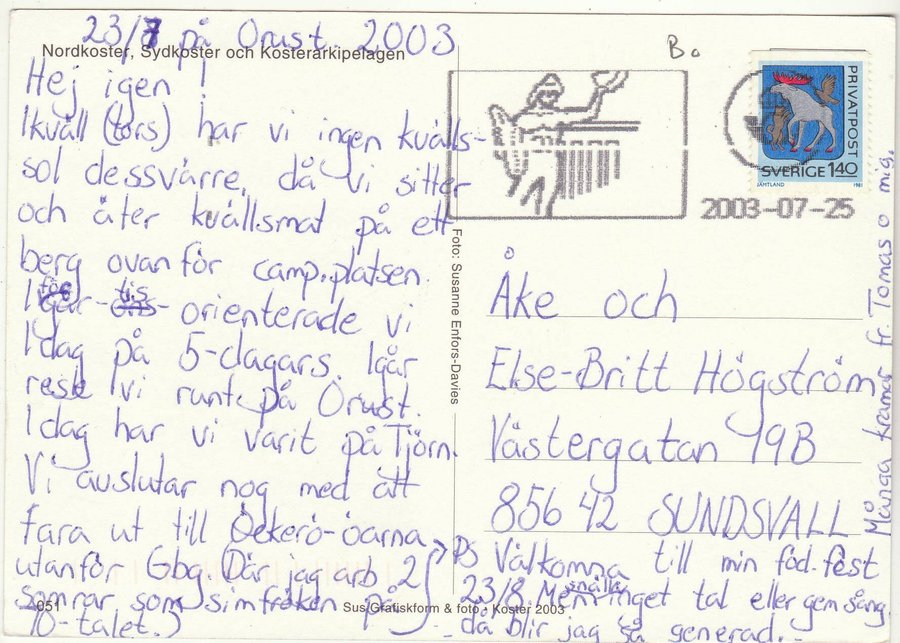 23/7 på Orust 2003
Nordkoster, Sydkoster och Kosterarkipelagen
Hej igen !
Ikväll (tors) har vi ingen kvälls-
sol dessvärre, då vi sitter
och äter kvällsmat på ett
berg ovanför camp.platsen.
I förgår-tis- orienterade vi
Idag på 5-dagars. Igår
reste vi runt på Orust.
Idag har vi varit på Tjörn.
Vi avslutar nog med att
fara ut till Öckerö-öarna
utanför Gbg (Där jag arb 2
somrar som simfröken på
70-talet.)
051
Foto: Susanne Enfors-Davies
Sus Grafiskform & foto • Koster 2003
B.
PRIVATPOST
SVERIGE 140
JÄMTLAND
1981
2003-07-25
Åke och
Else-Britt Högström
Västergatan 19B
856 42 SUNDSVALL
PS Välkomna till min föd.fest
23/8. Men snälla inget tal eller gem sång
då blir jag så generad.-
Många kramar fr. Tomas o mig.